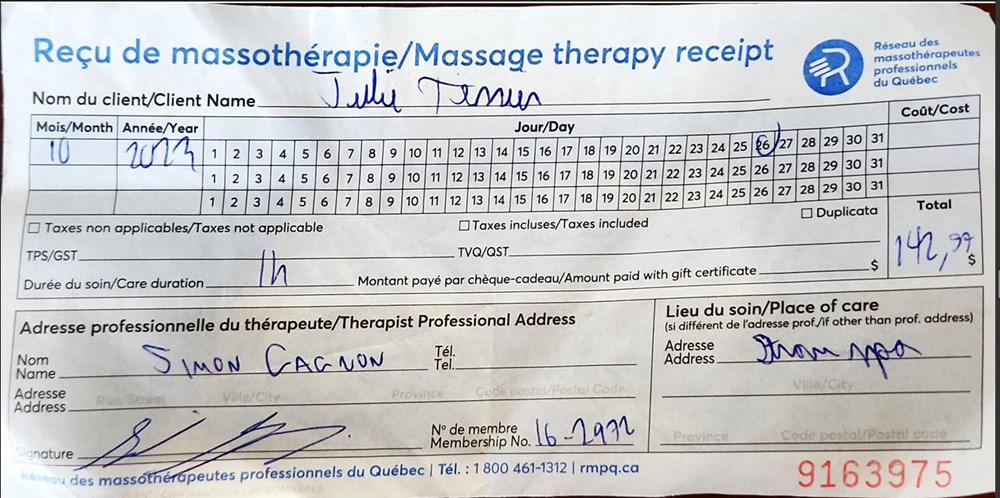 Reçu de massothérapie/Massage therapy receipt
Réseau des
massothérapeutes
professionnels
du Québec
Nom du client/Client Name Julie
Mois/Month Année/Year Jour/Day Coût/Cost
10 2023 1 2 3 4 5 6 7 8 9 10 11 12 13 14 15 16 17 18 19 20 21 22 23 24 25 26 27 28 29 30 31
1 2 3 4 5 6 7 8 9 10 11 12 13 14 15 16 17 18 19 20 21 22 23 24 25 26 27 28 29 30 31
1 2 3 4 5 6 7 8 9 10 11 12 13 14 15 16 17 18 19 20 21 22 23 24 25 26 27 28 29 30 31
Taxes non applicables/Taxes not applicable Taxes incluses/Taxes included Duplicata Total
TPS/GST TVQ/QST 142,99 $
Durée du soin/Care duration 1h Montant payé par chèque-cadeau/Amount paid with gift certificate $
Adresse professionnelle du thérapeute/Therapist Professional Address
Nom
Name SIMON GAGNON
Tél.
Tel.
Adresse
Address
Rue/Street Ville/City Province Code postal/Postal Code
Signature
N° de membre
Membership No. 16-2972
Lieu du soin/Place of care
(si différent de l'adresse prof./if other than prof. address)
Adresse
Address Strom spa
Ville/City
Province Code postal/Postal code
Réseau des massothérapeutes professionnels du Québec | Tél. : 1 800 461-1312 | rmpq.ca
9163975